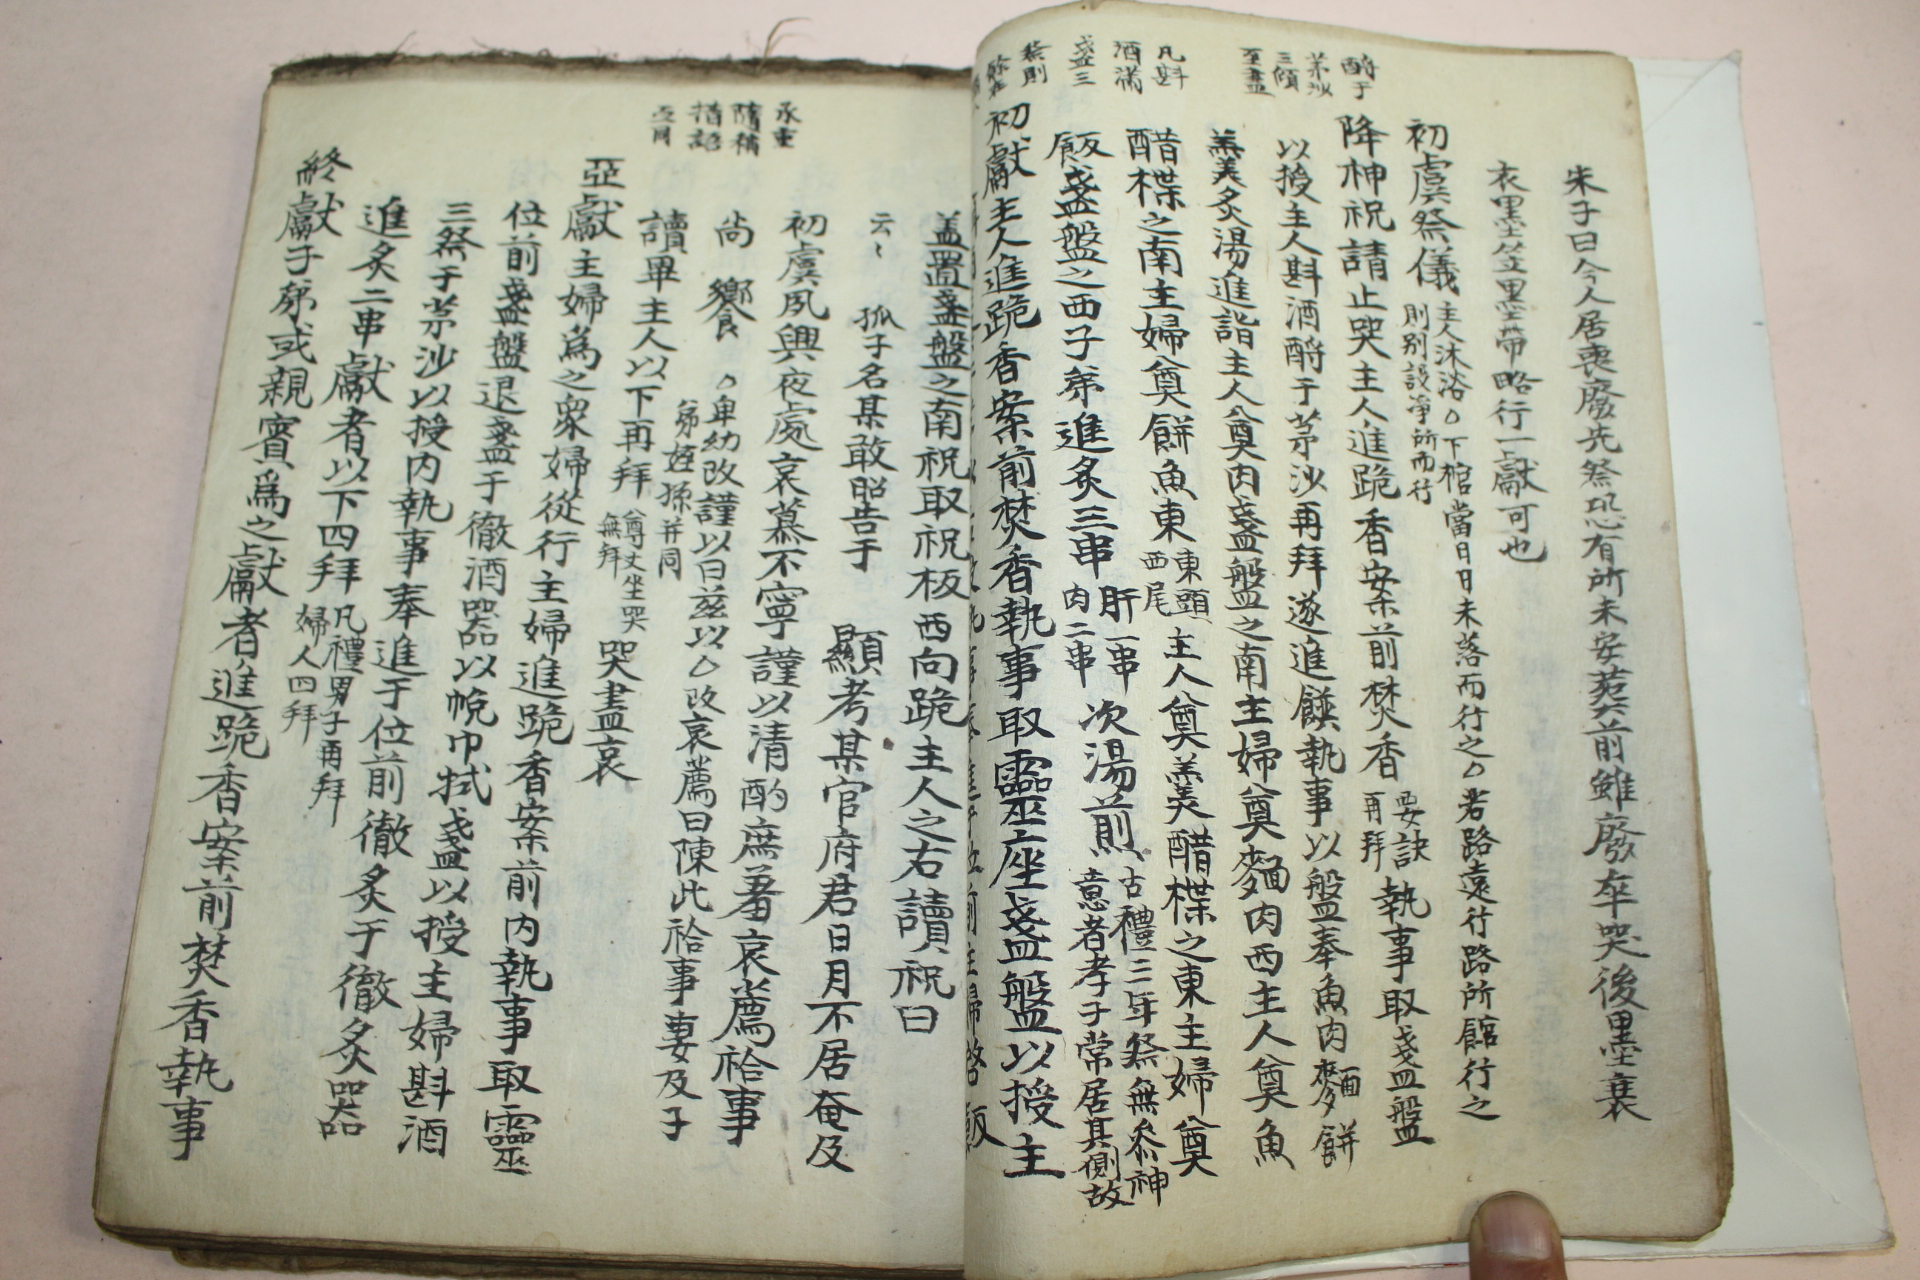 朱子曰今人居喪廢先祭恐有所未安葬前雖廢卒哭後墨衰
衣墨笠墨帶略行一獻可也
初虞祭儀
主人沐浴○下棺當日日未落而行之○若路遠行路所館行之
則別設淨所而行
酹于
茅沙
三傾
至盡
降神祝請止哭主人進跪香案前焚香
要訣
再拜
執事取盞盤
以授主人斟酒酹于茅沙再拜遂進饌執事以盤奉魚肉麵餠
羹炙湯進詣主人奠肉盞盤之南主婦奠麵肉西主人奠魚
凡斟
酒滿
盞三
祭則
醋楪之南主婦奠餠魚東
東頭
西尾
主人奠羹醋楪之東主婦奠
飯盞盤之西子弟進炙三串
肝一串
肉二串
次湯前
古禮三年祭無參神
意者孝子常居其側故
初獻主人進跪香案前焚香執事取靈座盞盤以授主
蓋置盞盤之南祝取祝板西向跪主人之右讀祝曰
云〻
孤子名某敢昭告于
顯考某官府君日月不居奄及
初虞夙興夜處哀慕不寧謹以清酌庶羞哀薦祫事
尙
饗
○卑幼改謹以曰玆以○改哀薦曰陳此祫事妻及子
弟姪孫幷同
承重
隨稱
措語
讀畢主人以下再拜
尊丈坐哭
無拜
哭盡哀
亞獻主婦爲之衆婦從行主婦進跪香案前內執事取靈
位前盞盤退盞于徹酒器以帨巾拭盞以授主婦斟酒
三祭于茅沙以授內執事奉進于位前徹炙于徹炙器
進炙二串獻者以下四拜
凡禮男子再拜
婦人四拜
終獻子弟或親賓爲之獻者進跪香案前焚香執事